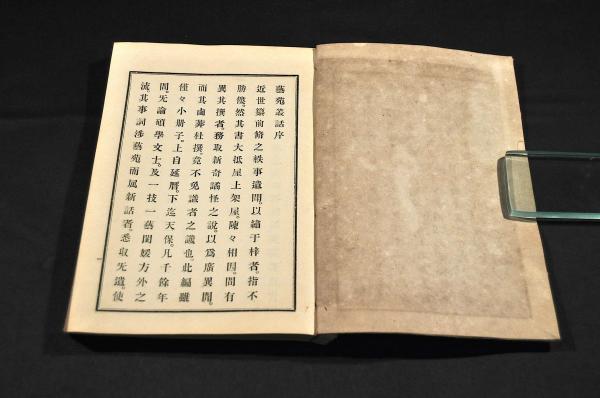 藝苑叢話序
近世纂前脩之軼事遺聞。以繡于梓者。指不
勝僂。然其書大抵屋上架屋。陳々相因。間有
異其撰者。務取新奇譎怪之說。以爲廣異聞。
而其鹵莽杜撰。竟不免識者之譏也。此編雖
僅々小冊子。上自延曆。下迄天保。凡千餘年
間。无論碩學文士。及一技一藝閨媛方外之
流。其事詞涉藝苑而属新話者。悉取无遺。使